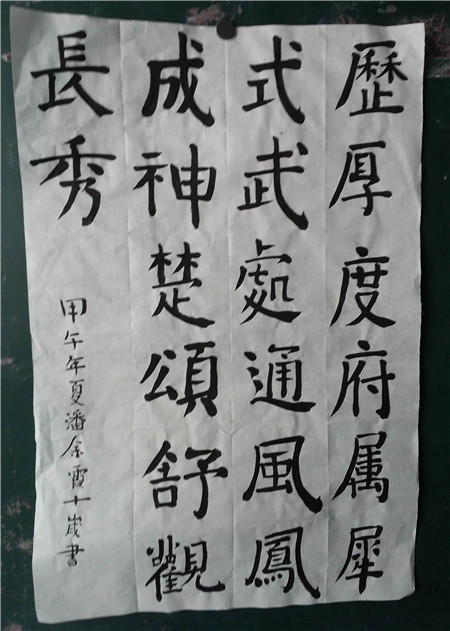 歷厚度府属犀
式武處通風鳳
成神楚頌舒觀
長秀
甲午年夏潘余霄十歲書